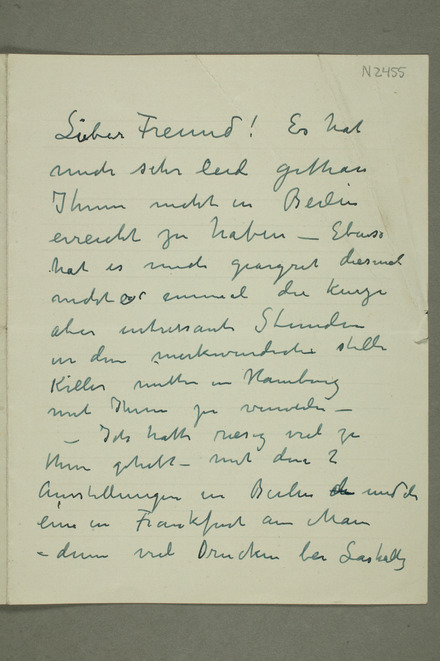 N2455
Lieber Freund! Es hat
mich sehr leid gethan
Ihnen nicht in Berlin
erreicht zu haben – Ebenso
hat es mich geärgert diesmal
nicht einmal die kurze
aber interessante Stunden
in dem merkwürdiche stille
Keller mitten in Hamburg
mit Ihnen zu verweilen –
– Ich hatte riesig viel zu
thun gehabt – mit den 2
Ausstellungen in Berlin und die
eine in Frankfurt am Main
– dann viel Drucken bei